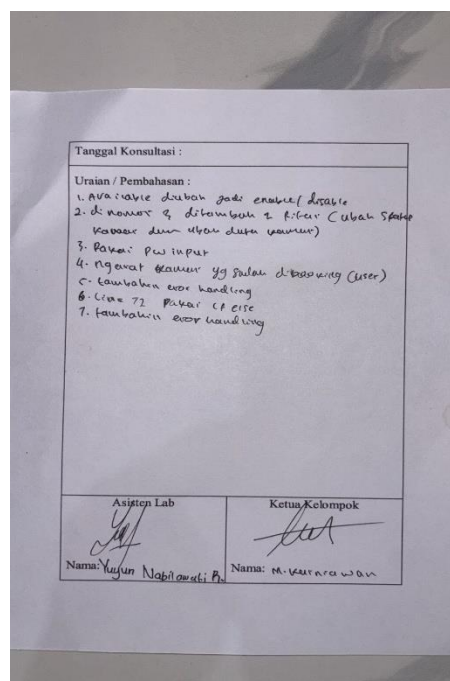 Tanggal Konsultasi :
Uraian / Pembahasan :
1. Available diubah jadi enable/disable
2. di nomor 3 ditambah 2 fitur (ubah status
kamar dan ubah data kamar)
3. Pakai pw input
4. ngawat kamar yg sudah dibooking (user)
5. tambahin eror handling
6. Line 72 pakai if else
7. tambahin eror handling
Asisten Lab
Ketua Kelompok
Nama: Yuyun Nabilawati R.
Nama: M. Kurniawan